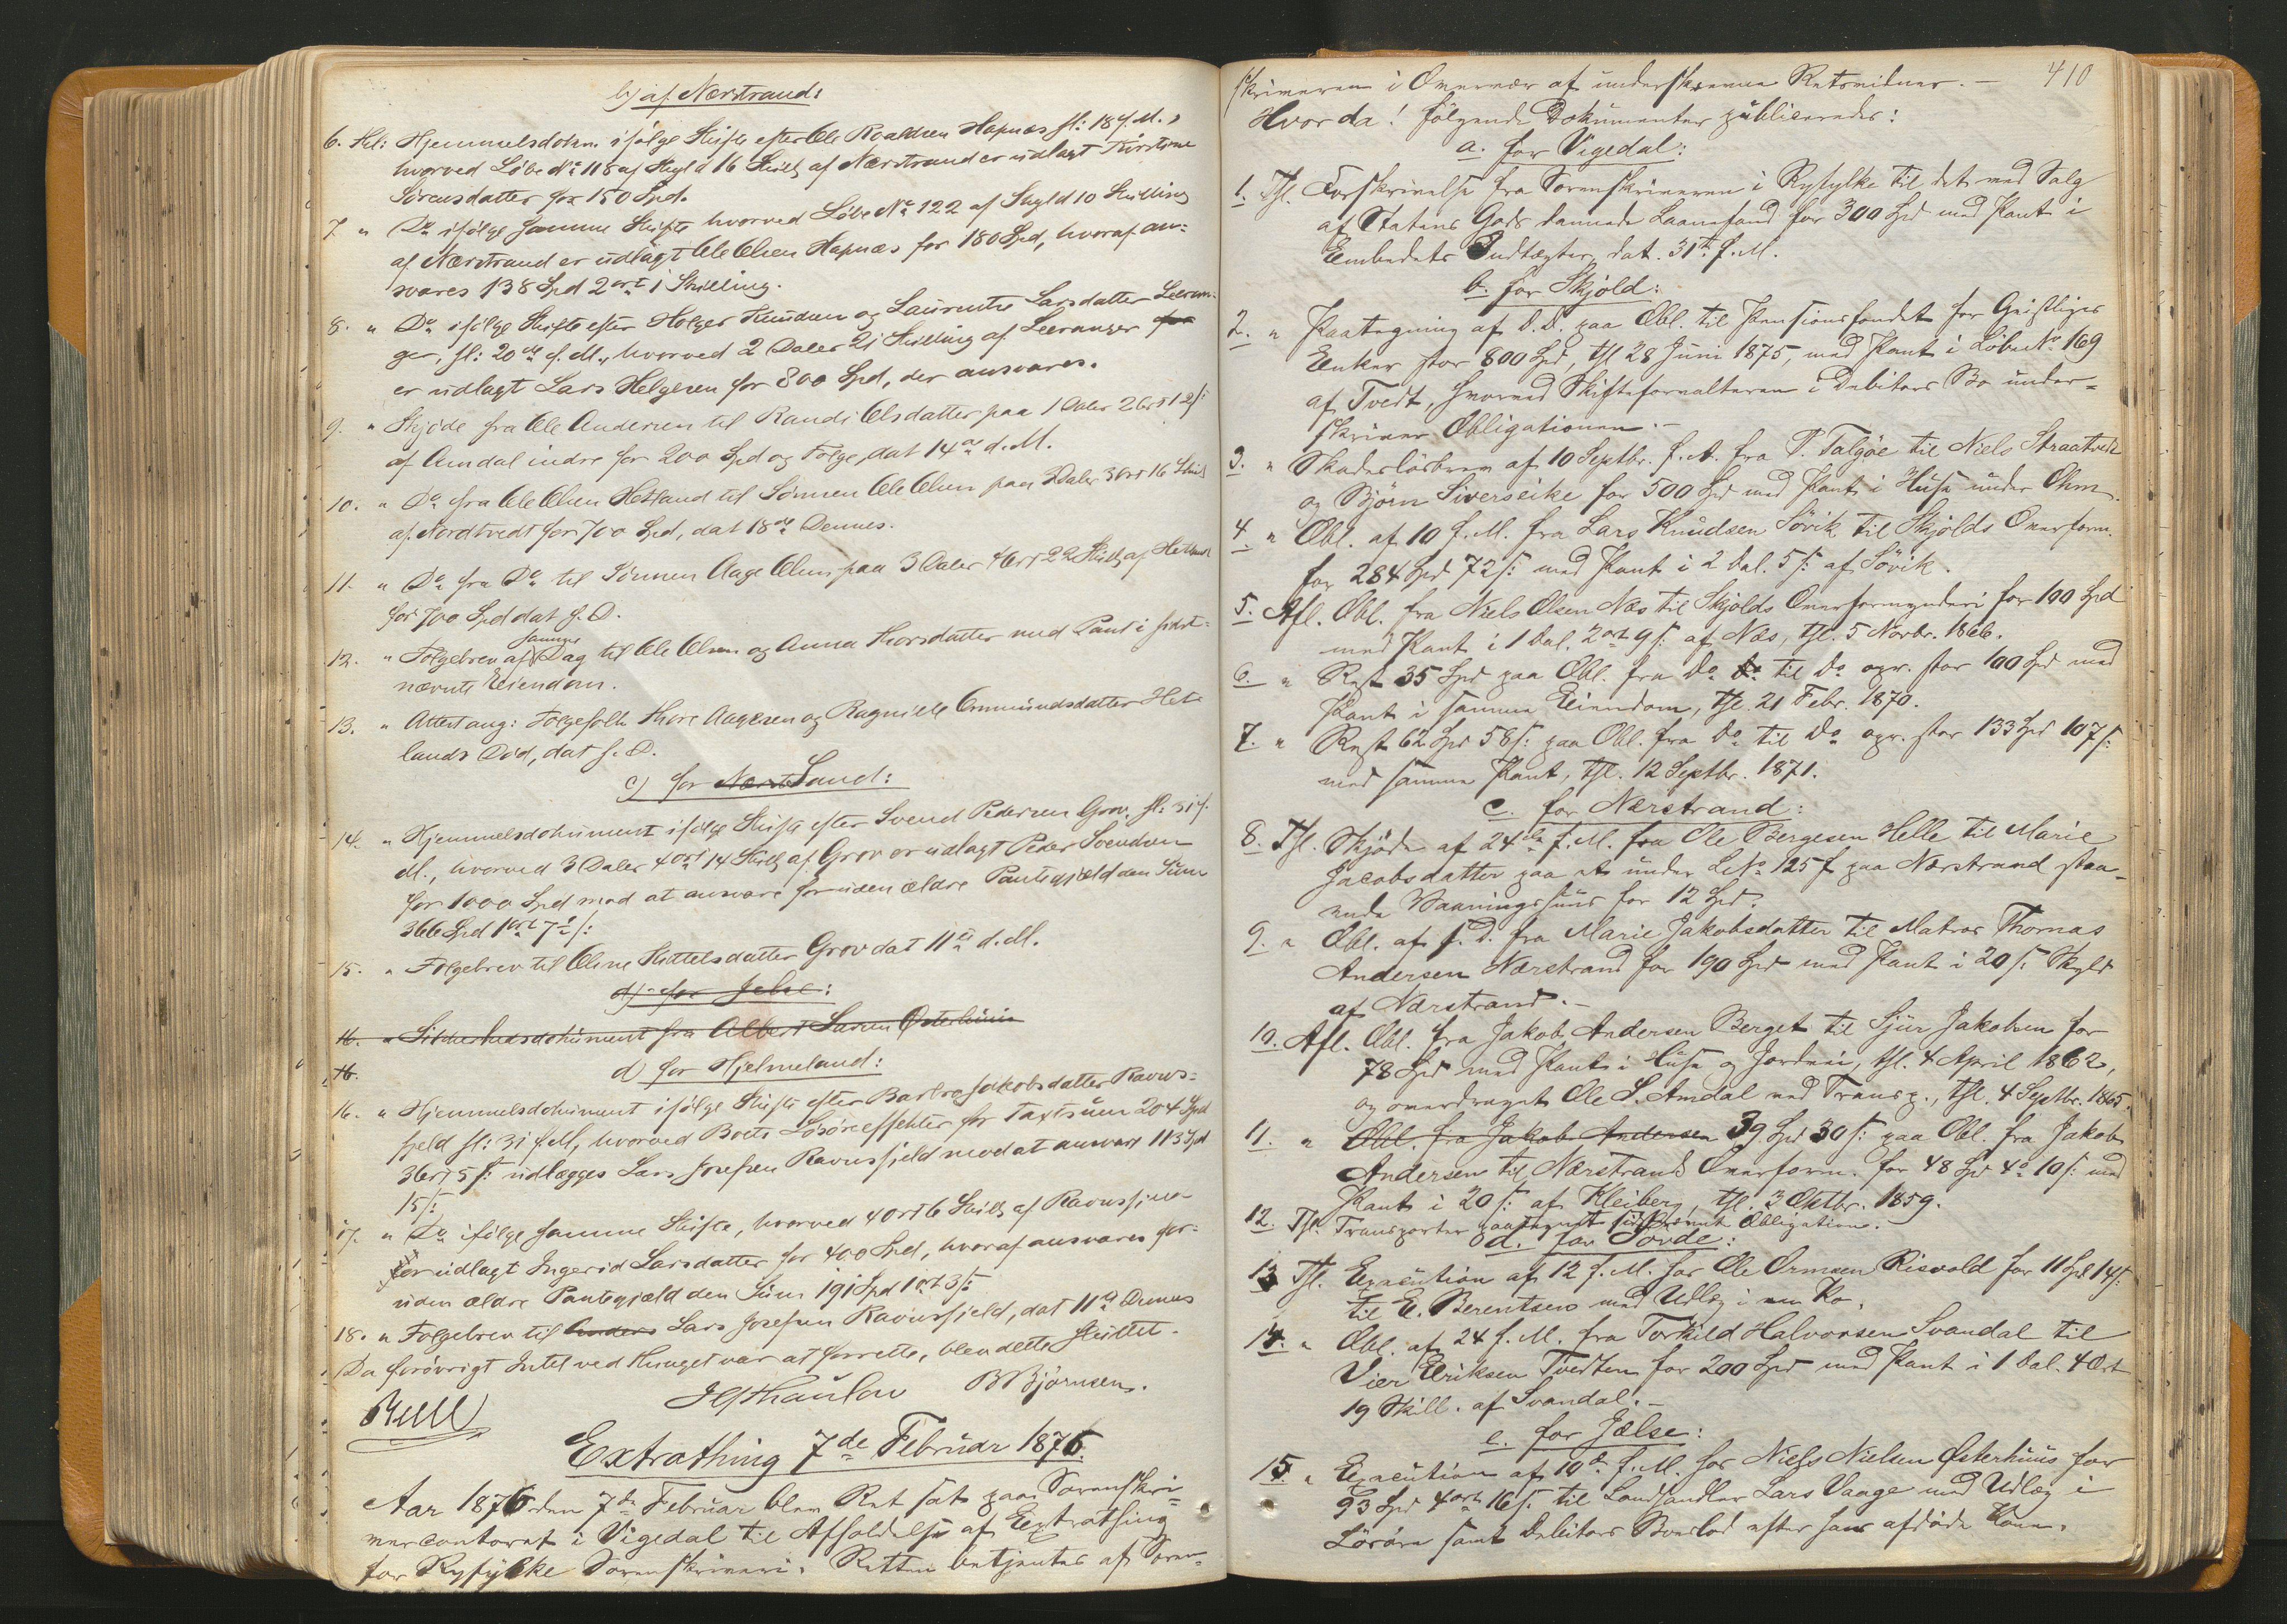 b) af Nærstrand:
6. Thl: Hjemmelsdokm. ifølge Skifte efter Ole Roaldsen Hapnæs sl: 18 f. M.,
hvorved Løbe No 118 af Skyld 16 Skill af Nærstrand er udlagt Thorstine
Sørensdatter for 150 Spd.
7. " Do ifølge samme Skifte hvorved Løbe No 122 af Skyld 10 Skilling
af Nærstrand er udlagt Ole Olsen Hapnæs for 180 Spd, hvoraf an-
svares 138 Spd 2 ort 1 Skilling.
8. " Do ifølge Skifte efter Holger Knudsen og Laurentse Larsdatter Leeran-
ger, sl: 20de f. M., hvorved 2 Daler 21 Skilling af Leeranger for
er udlagt Lars Helgesen for 800 Spd, der ansvares.
9. " Skjøde fra Ole Andersen til Randi Olsdatter paa 1 Daler 2 Ort 12 s:
af Amdal indre for 200 Spd og Følge, dat 14de d. M.
10. " Do fra Ole Olsen Hetland til Sønnen Ole Olsen paa 3 Daler 3 Ort 16 Skill
af Nordtvedt for 700 Spd, dat 18de Dennes.
11. " Do fra Do til Sønnen Aage Olsen paa 3 Daler 4 Ort 22 Skill af Hetland
for 700 Spd dat s. D.
12. " Følgebrev af samme Dag til Ole Olsen og Anna Thorsdatter med Pant i sidst-
nævnte Eiendom.
13. " Attest ang: Følgefolk Thore Aagesen og Ragnilde Ommundsdatter Het-
lands Død, dat s. D.
c) for Nærst Sand:
14. " Hjemmelsdokument ifølge Skifte efter Svend Pedersen Grov, sl: 31 f.
M., hvorved 3 Daler 4 ort 14 Skill af Grov er udlagt Peder Svendsen
for 1000 Spd mod at ansvare foruden ældre Pantegjæld den Sum
366 Spd 1 ort 7 s:
15. " Følgebrev til Oline Kittelsdatter Grov dat 11te d. M.
d) for Jelse:
16. " Sikkerhedsdokument fra Albert Larsen Østerhuus
16. d) for Hjelmeland:
16. " Hjemmelsdokument ifølge Skifte efter Barbro Jakobsdatter Ravns-
fjeld sl: 31 f. M, hvorved Boets Løsøreeffekter for Taxtsum 204 Spd
3 Ort 5 s: udlægges Lars Josefsen Ravnsfjeld mod at ansvare 113 Spd
15 s:
17. " Do ifølge samme Skifte, hvorved 4 Ort 6 Skill af Ravnsfjeld
er udlagt Ingerid Larsdatter for 400 Spd, hvoraf ansvares for-
uden ældre Pantegjæld den Sum 191 Spd 1 ort 3 s:
18. " Følgebrev til Anders Lars Josefsen Ravnsfjeld, dat 11te Dennes
Da forøvrigt Intet ved Thinget var at forrette, blev dette sluttet.
Bull Thaulow B Bjørnsen.
Extrathing 7de Februar 1876.
Aar 1876 den 7de Februar blev Ret sat paa Sorenskri-
vercontoret i Vigedal til Afholdelse af Extrathing
for Ryfylke Sorenskriveri. Retten betjentes af Soren-
410
skriveren i Overvær af underskrevne Retsvidner. –
Hvorda! følgende Dokumenter publiceredes:
a. for Vigedal:
1. Thl. Forskrivelse fra Sorenskriveren i Ryfylke til det ved Salg
af Statens Gods dannede Laanefond for 300 Spd med Pant i
Embedets Indtægter, dat. 31te f. M.
b. for Skjold:
2. " Paategning af d.D. paa Obl. til Pensionsfondet for Geistliges
Enker stor 800 Spd, thl 28 Juni 1875, med Pant i Løbe No 169
af Tvedt, hvorved Skifteforvalteren i Debitors Bo under-
skriver Obligationen. –
3. " Skadesløsbrev af 10 Septbr. f. A. fra P. Talgøe til Niels Straatveit
og Bjørn Siverseike for 500 Spd med Pant i Huse under Ohm.
4. " Obl. af 10 f. M. fra Lars Knudsen Søvik til Skjolds Overform.
for 284 Spd 72 s: med Pant i 2 Dal. 5 s: af Søvik.
5. Afl. Obl. fra Niels Olsen Næs til Skjolds Overformynderi for 100 Spd
med Pant i 1 Dal. 2 ort 9 s: af Næs, thl. 5 Novbr. 1866.
6. " Rest 35 Spd paa Obl. fra Do Do til Do opr. stor 100 Spd med
Pant i samme Eiendom, thl. 21 Febr. 1870.
7. " Rest 62 Spd 58 s: paa Obl. fra Do til Do opr. stor 133 Spd 107 s:
med samme Pant, thl. 12 Septbr. 1871.
c. for Nærstrand:
8. Thl. Skjøde af 24de f. M. fra Ole Bergesen Helle til Marie
Jacobsdatter paa et under L No 125 f paa Nærstrand staa-
ende Vaaningshuus for 12 Spd.
9. " Obl. af s. d. fra Marie Jakobsdatter til Matros Thomas
Andersen Nærstrand for 190 Spd med Pant i 20 s: Skyld
af Nærstrand. –
10. Afl. Obl. fra Jakob Andersen Berget til Sjur Jakobsen for
78 Spd med Pant i Huse og Jordvei, thl. 4 April 1862,
og overdraget Ole S. Amdal ved Transp., thl. 4 Septbr. 1865.
11. " Obl. fra Jakob Andersen 39 Spd 30 s: paa Obl. fra Jakob
Andersen til Nærstrands Overform. for 48 Spd 4 o 10 s: med
Pant i 20 s: af Kleiberg, thl. 3 Oktbr. 1859.
12. Thl. Transporter paategnet sidstnævnt Obligation.
d. for Sovde:
13 Thl. Execution af 12 f. M. hos Ole Ormsen Risvold for 11 Spd 14 s:
til E. Berentsen med Udlæg i en Ko.
14. " Obl. af 24 f. M. fra Torkild Halvorsen Svandal til
Vier Eriksen Tvedten for 200 Spd med Pant i 1 Dal. 4 Ort
19 Skill. af Svandal. –
e. for Jælse:
15. " Execution af 10de f. M. hos Niels Nielsen Østerhuus for
93 Spd 4 ort 16 s. til Landhandler Lars Vaage med Udlæg i
Løsøre samt Debitors Boeslod efter hans afdøde Kone.